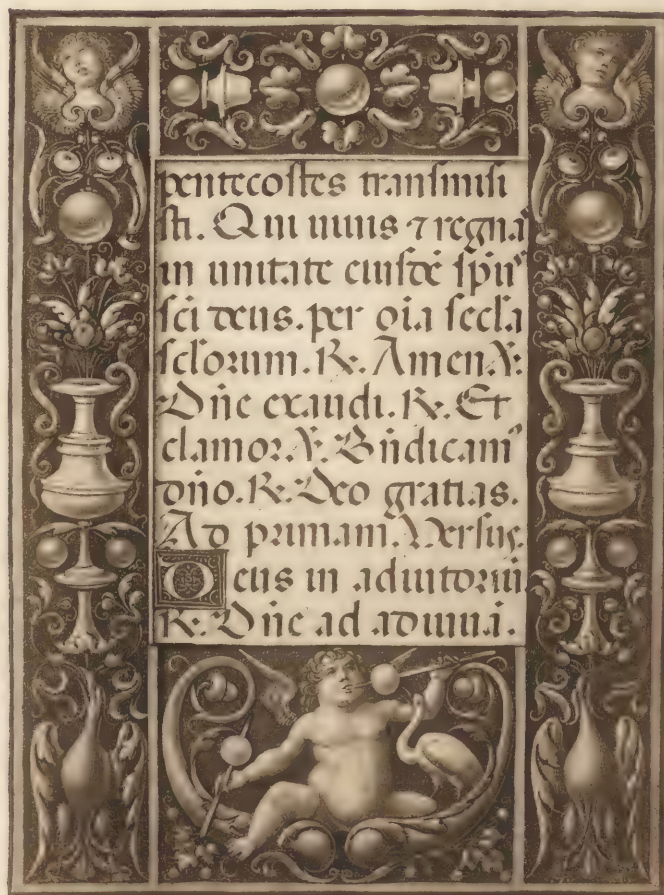 pentecostes transmisi
sti. Qui uiuis ⁊ regnaˢ
in unitate eiusdē spūˢ
sc̄i deus. per oīa secl̄a
scl̄orum. ℟. Amen. ℣.
Dn̄e exaudi. ℟. Et
clamor. ℣. Bn̄dicamꝰ
dn̄o. ℟. Deo gratias.
Ad primam. Versus.
Deus in adiutoriū
℟. Dn̄e ad adiuuā.